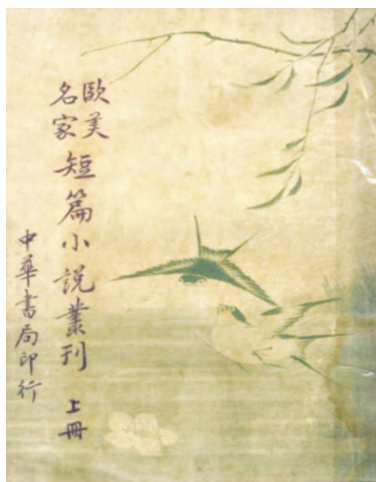 歐美
名家
短篇小說叢刊
上冊
中華書局印行